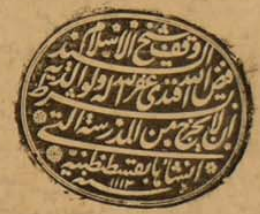 اوقفه شيخ الاسلام السيد
فيض الله افندى غفر الله له ولوالديه
بشرط ان لا يخرج من المدرسة التى
انشأها بقسطنطينية
سنه ١١١٢